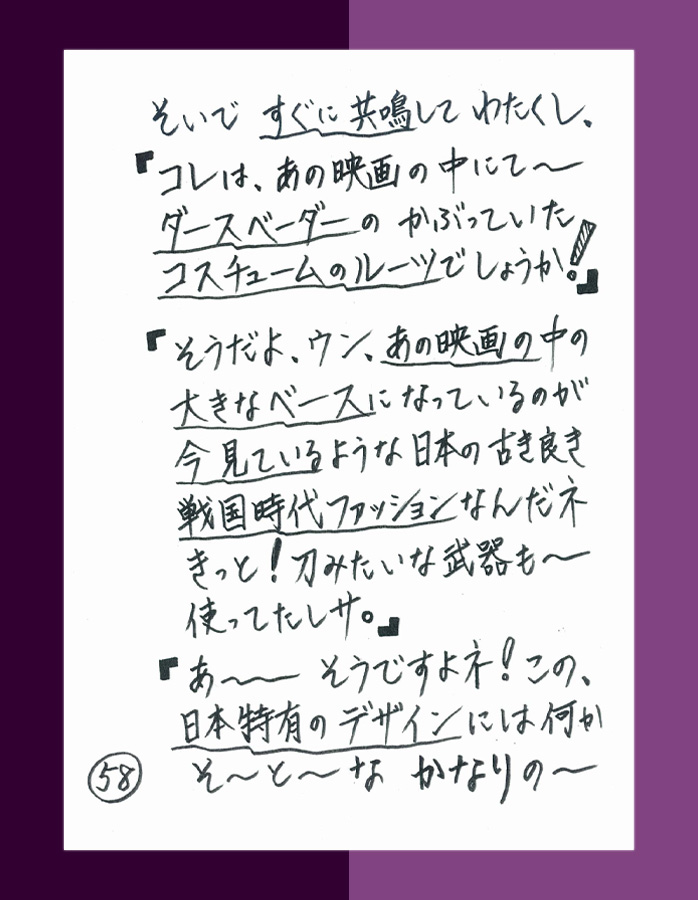 そいで すぐに共鳴して わたくし、
『コレは、あの映画の中にて〜
ダースベーダーの かぶっていた
コスチュームのルーツでしょうか!』
『そうだよ、ウン、あの映画の中の
大きなベースになっているのが
今見ているような日本の古き良き
戦国時代ファッションなんだネ
きっと!刀みたいな武器も〜
使ってたしサ。』
『あ〜〜 そうですよネ!この、
日本特有のデザインには何か
そ〜と〜な かなりの〜
58